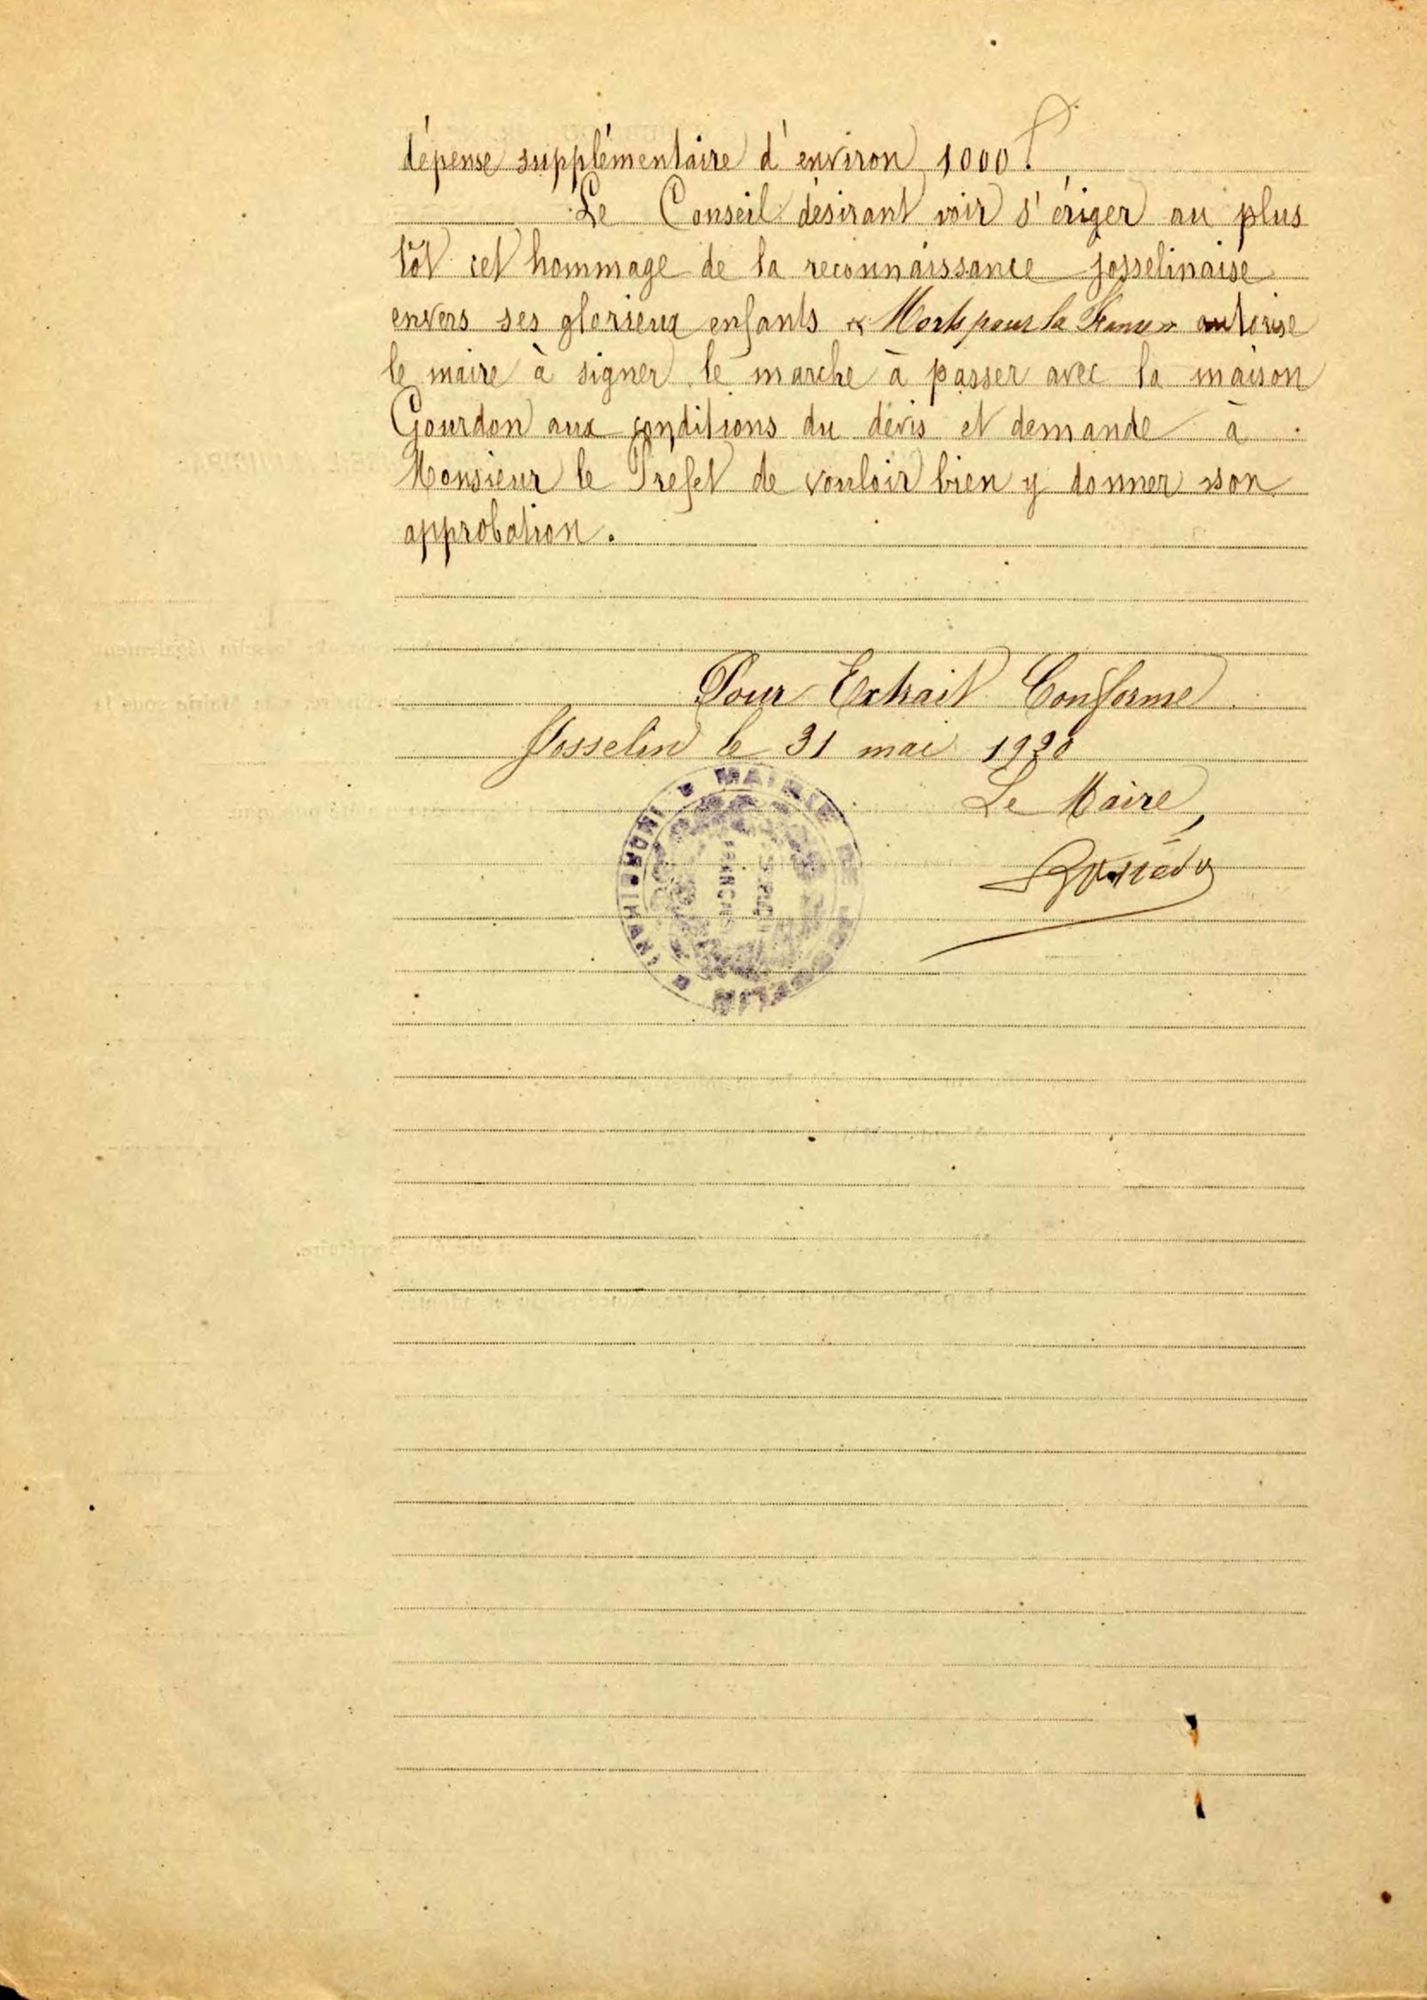 dépense supplémentaire d'environ 1000f
Le Conseil désirant voir s'ériger au plus
tôt cet hommage de la reconnaissance josselinaise
envers ses glorieux enfants « Morts pour la France » autorise
le maire à signer le marche à passer avec la maison
Gourdon aux conditions du dévis et demande à
Monsieur le Préfet de vouloir bien y donner son
approbation.
Pour Extrait Conforme
Josselin le 31 mai 1920
Le Maire,
MAIRIE DE JOSSELIN (MORBIHAN)